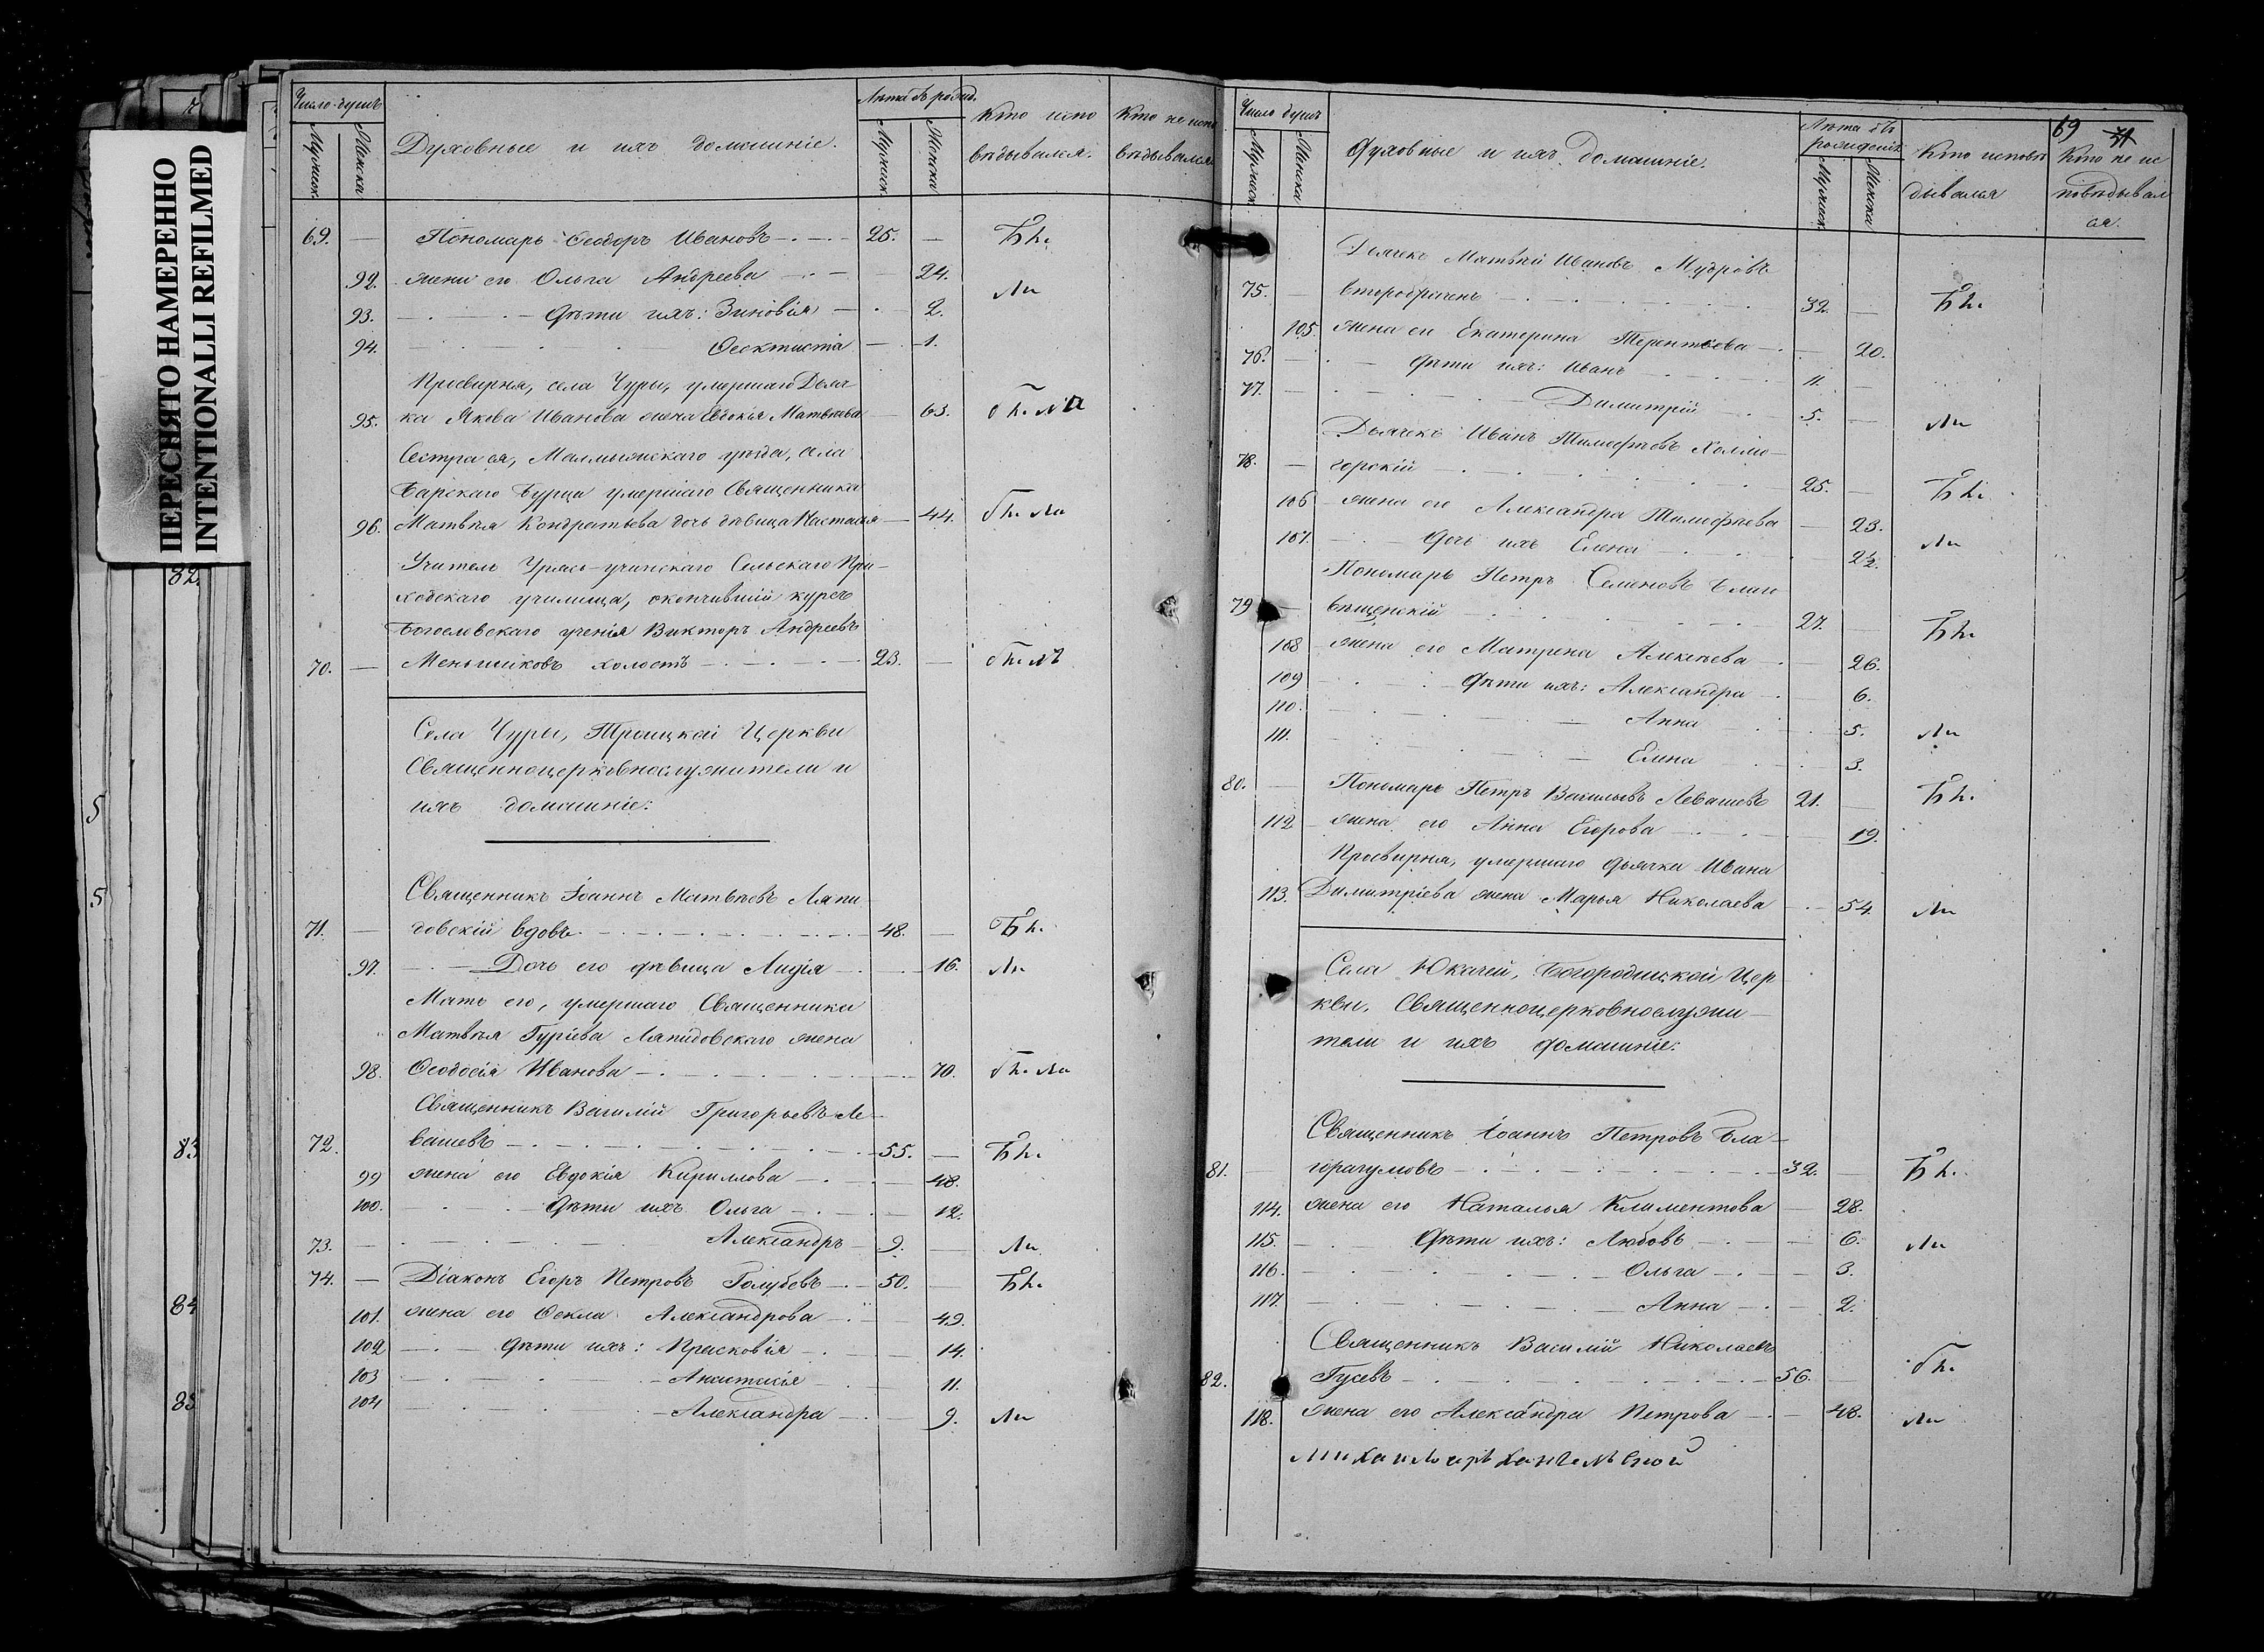 ПЕРЕСНЯТО НАМЕРЕННО
INTENTIONALLI REFILMED
82.
5
5
83
84
85
Число душъ
Мужеск.
Женска
Духовные и ихъ домашніе.
Лѣта отъ рожд.
Мужеск.
Женска
Кто испо
вѣдывался.
Кто не испо
вѣдывался
69. — Пономарь Ѳеодоръ Ивановъ 25. —
92. жена его Ольга Андреева — 24.
93. Дѣти ихъ: Зиновія — 2.
94. Ѳеоктиста — 1.
Просвирня, села Чуры, умершаго Дьяч-
95. ка Якова Иванова жена Евдокія Матвѣева — 63.
Сестра ея, Малмыжскаго уѣзда, села
Барскаго Бурца умершаго Священника
96. Матвѣя Кондратьева дочь дѣвица Настасья — 44.
Учитель Уряс-учинскаго Сельскаго При-
ходскаго училища, окончившій курсъ
Богословскаго ученія Викторъ Андреевъ
70. — Меньшиковъ холостъ 23. —
Села Чуры, Троицкой Церкви
Священноцерковнослужители и
ихъ домашніе:
Священникъ Іоаннъ Матвѣевъ Ляпи
71. — довскій вдовъ 48. —
97. Дочь его дѣвица Лидія — 16.
Мать его, умершаго Священника
Матвѣя Гуріева Ляпидовскаго жена
98. Ѳеодосія Иванова — 70.
Священникъ Василій Григорьевъ Ле-
72. вашевъ 55. —
99 жена его Евдокія Кирилловa — 48.
100. Дѣти ихъ Ольга — 12.
73. — Александръ 9. —
74. — Діаконъ Егоръ Петровъ Голубевъ 50. —
101. жена его Ѳекла Александрова — 49.
102 Дѣти ихъ: Прасковія — 14.
103 — 11.
104 Александра — 9.
69 71
Число душъ
Мужеск.
Женска
Духовные и ихъ домашніе.
Лѣта отъ
рожденія
Мужеск.
Женска
Кто исповѣ
дывался
Кто не ис
повѣдывал
ся.
Дьячекъ Матвѣй Ивановъ Мудровъ
75. — второбраченъ 32. —
105. жена его Екатерина Терентьева — 20.
76. — Дѣти ихъ: Иванъ 11. —
77. — Димитрій 5. —
Дьячекъ Иванъ Тимофѣевъ Холмо-
78. — горскій 25. —
106 жена его Александра Тимофѣева — 23.
107. Дочь ихъ Елена
Пономарь Петръ Семеновъ Благо
79 — вѣщенскій 27. —
108 жена его Матрена Алексѣева — 26.
109 Дѣти ихъ: Александра — 6.
110. Анна 5.
111. Елена 3.
80. — Пономарь Петръ Васильевъ Левашевъ 21. —
112 жена его Анна Егорова — 19.
Просвирня, умершаго дьячка Ивана
113. Димитріева жена Марья Николаева — 54.
Села Юкачей, Богородицкой Цер
кви, Священноцерковнослужи-
тели и ихъ домашніе:
Священникъ Іоаннъ Петровъ Бла-
81. — горазумовъ 32. —
114. жена его Наталья Климентова — 28.
115. Дѣти ихъ: Любовь — 6.
116. Ольга — 3.
117. Анна — 2.
Священникъ Василій Николаевъ
82. Гусевъ 56. —
118. жена его Александра Петрова — 48.